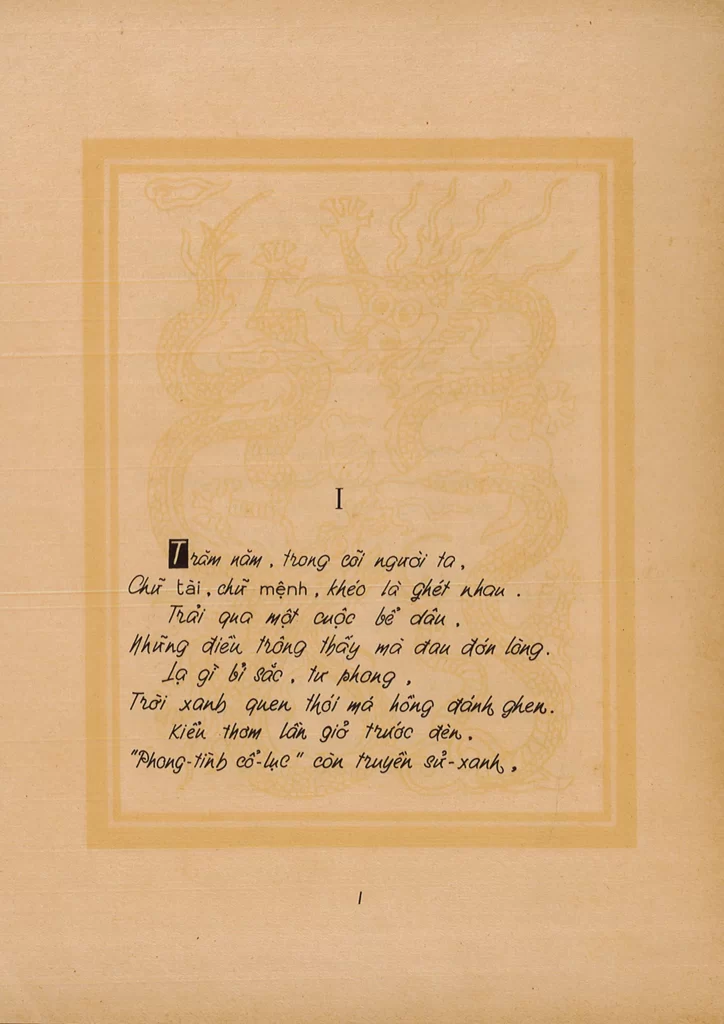 I
Trăm năm, trong cõi người ta,
Chữ tài, chữ mệnh, khéo là ghét nhau.
Trải qua một cuộc bể dâu,
Những điều trông thấy mà đau đớn lòng.
Lạ gì bỉ sắc, tư phong,
Trời xanh quen thói má hồng đánh ghen.
Kiểu thơm lần giở trước đèn,
"Phong-tình cổ-lục" còn truyền sử-xanh,
1